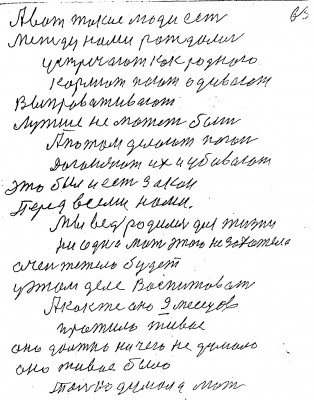 А вот такое люди ест 63
Между нами рождалис
устречают как родного
кормют поют одевают
Выпроваживают
лучше не может быт
А потом делают погон
догоняют их и убавают
это был и ест закон
Перед всеми нами.
Мы вед родилис для жизни
ни одна мат этого не захотела
очен тежело будет
у этом деле воспитоват
А как же оно 9 месецов
прожило живое
оно должно ничего не думало
оно живое было
только думала мат